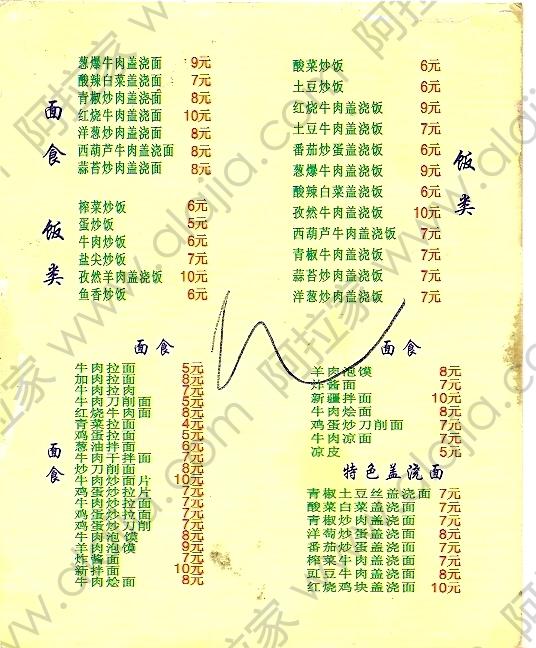 面食
葱爆牛肉盖浇面 9元
酸辣白菜盖浇面 7元
青椒炒肉盖浇面 8元
红烧牛肉盖浇面 10元
洋葱炒肉盖浇面 8元
西葫芦牛肉盖浇面 8元
蒜苔炒肉盖浇面 8元
饭类
榨菜炒饭 6元
蛋炒饭 5元
牛肉炒饭 6元
盐尖炒饭 7元
孜然羊肉盖浇饭 10元
鱼香炒饭 6元
饭类
酸菜炒饭 6元
土豆炒饭 6元
红烧牛肉盖浇饭 9元
土豆牛肉盖浇饭 7元
番茄炒蛋盖浇饭 7元
葱爆牛肉盖浇饭 9元
酸辣白菜盖浇饭 6元
孜然牛肉盖浇饭 10元
西葫芦牛肉盖浇饭 7元
青椒牛肉盖浇饭 7元
蒜苔炒肉盖浇饭 7元
洋葱炒肉盖浇饭 7元
面食
面食
牛肉拉面 5元
加肉拉面 8元
牛肉拉肉 7元
牛肉刀削面 5元
红烧牛肉面 8元
青菜拉面 4元
鸡蛋拉面 5元
葱油拌面 6元
牛肉干拌面 7元
炒刀削面 8元
牛肉炒面片 10元
鸡蛋炒拉片 7元
牛肉炒拉面 7元
鸡蛋炒拉面 7元
鸡蛋炒刀削 7元
牛肉泡馍 8元
羊肉泡馍 9元
炸酱面 7元
新拌面 10元
牛肉烩面 8元
面食
羊肉泡馍 8元
炸酱面 7元
新疆拌面 10元
牛肉烩面 8元
鸡蛋炒刀削面 7元
牛肉凉面 7元
凉皮 5元
特色盖浇面
青椒土豆丝盖浇面 7元
酸菜白菜盖浇面 7元
青椒炒肉盖浇面 7元
洋萄炒蛋盖浇面 8元
番茄炒蛋盖浇面 7元
榨菜牛肉盖浇面 7元
豇豆牛肉盖浇面 8元
红烧鸡块盖浇面 10元
阿拉家 www.alajia.com